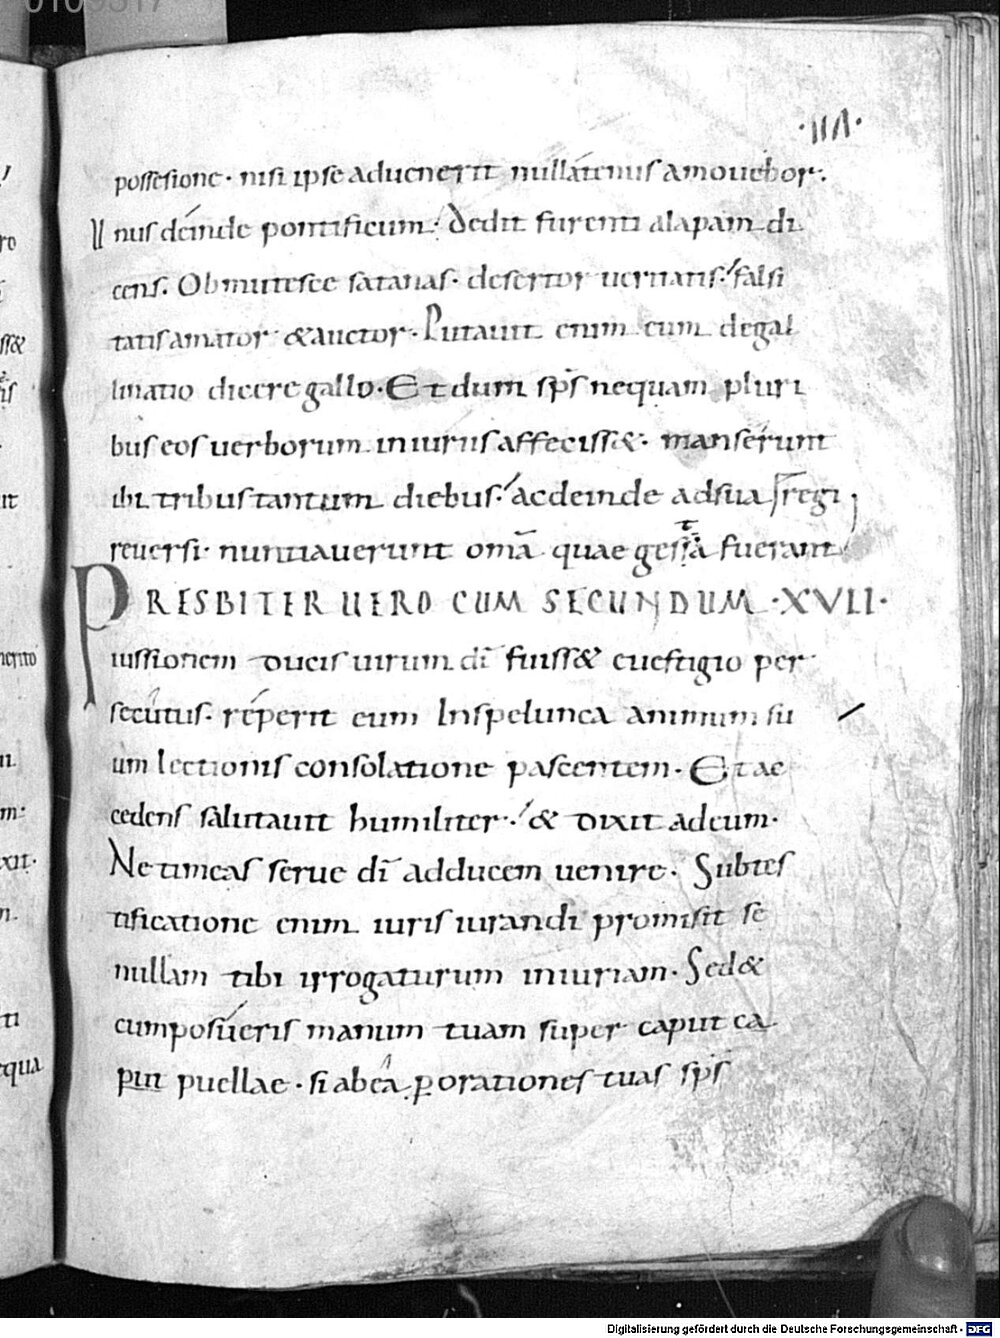 ·VII·
possesione· nisi ipse aduenerit nullatenus amouebor.
Unus deinde pontificum· dedit furenti alapam di
cens. Obmutesce satanas· desertor ueritatis· falsi
tatis amator &auctor· Putauit enim eum degal
linatio dicere gallo· Et dum sp̄s nequam pluri
bus eos uerborum iniuriis affeciss&· manserunt
ibi tribus tantum diebus· ac deinde ad sua regi
reuersi· nuntiauerunt om̄a quae gesta fuerant
PRESBITER UERO CUM SECUNDUM ·XVII·
iussionem ducis uirum dī fuiss& euestigio per
secutus· reperit eum In spelunca animum su
um lectionis consolatione pascentem· Et ac
cedens salutauit humiliter· & dixit ad eum·
Ne timeas serue dī adducem uenire· Subtes
tificatione enim iuris iurandi promisit se
nullam tibi irrogaturum iniuriam· Sed &
cum posueris manum tuam super caput ca
piti puellae· si ab ea ꝑ orationes tuas sp̄s
Digitalisierung gefördert durch die Deutsche Forschungsgemeinschaft - DFG